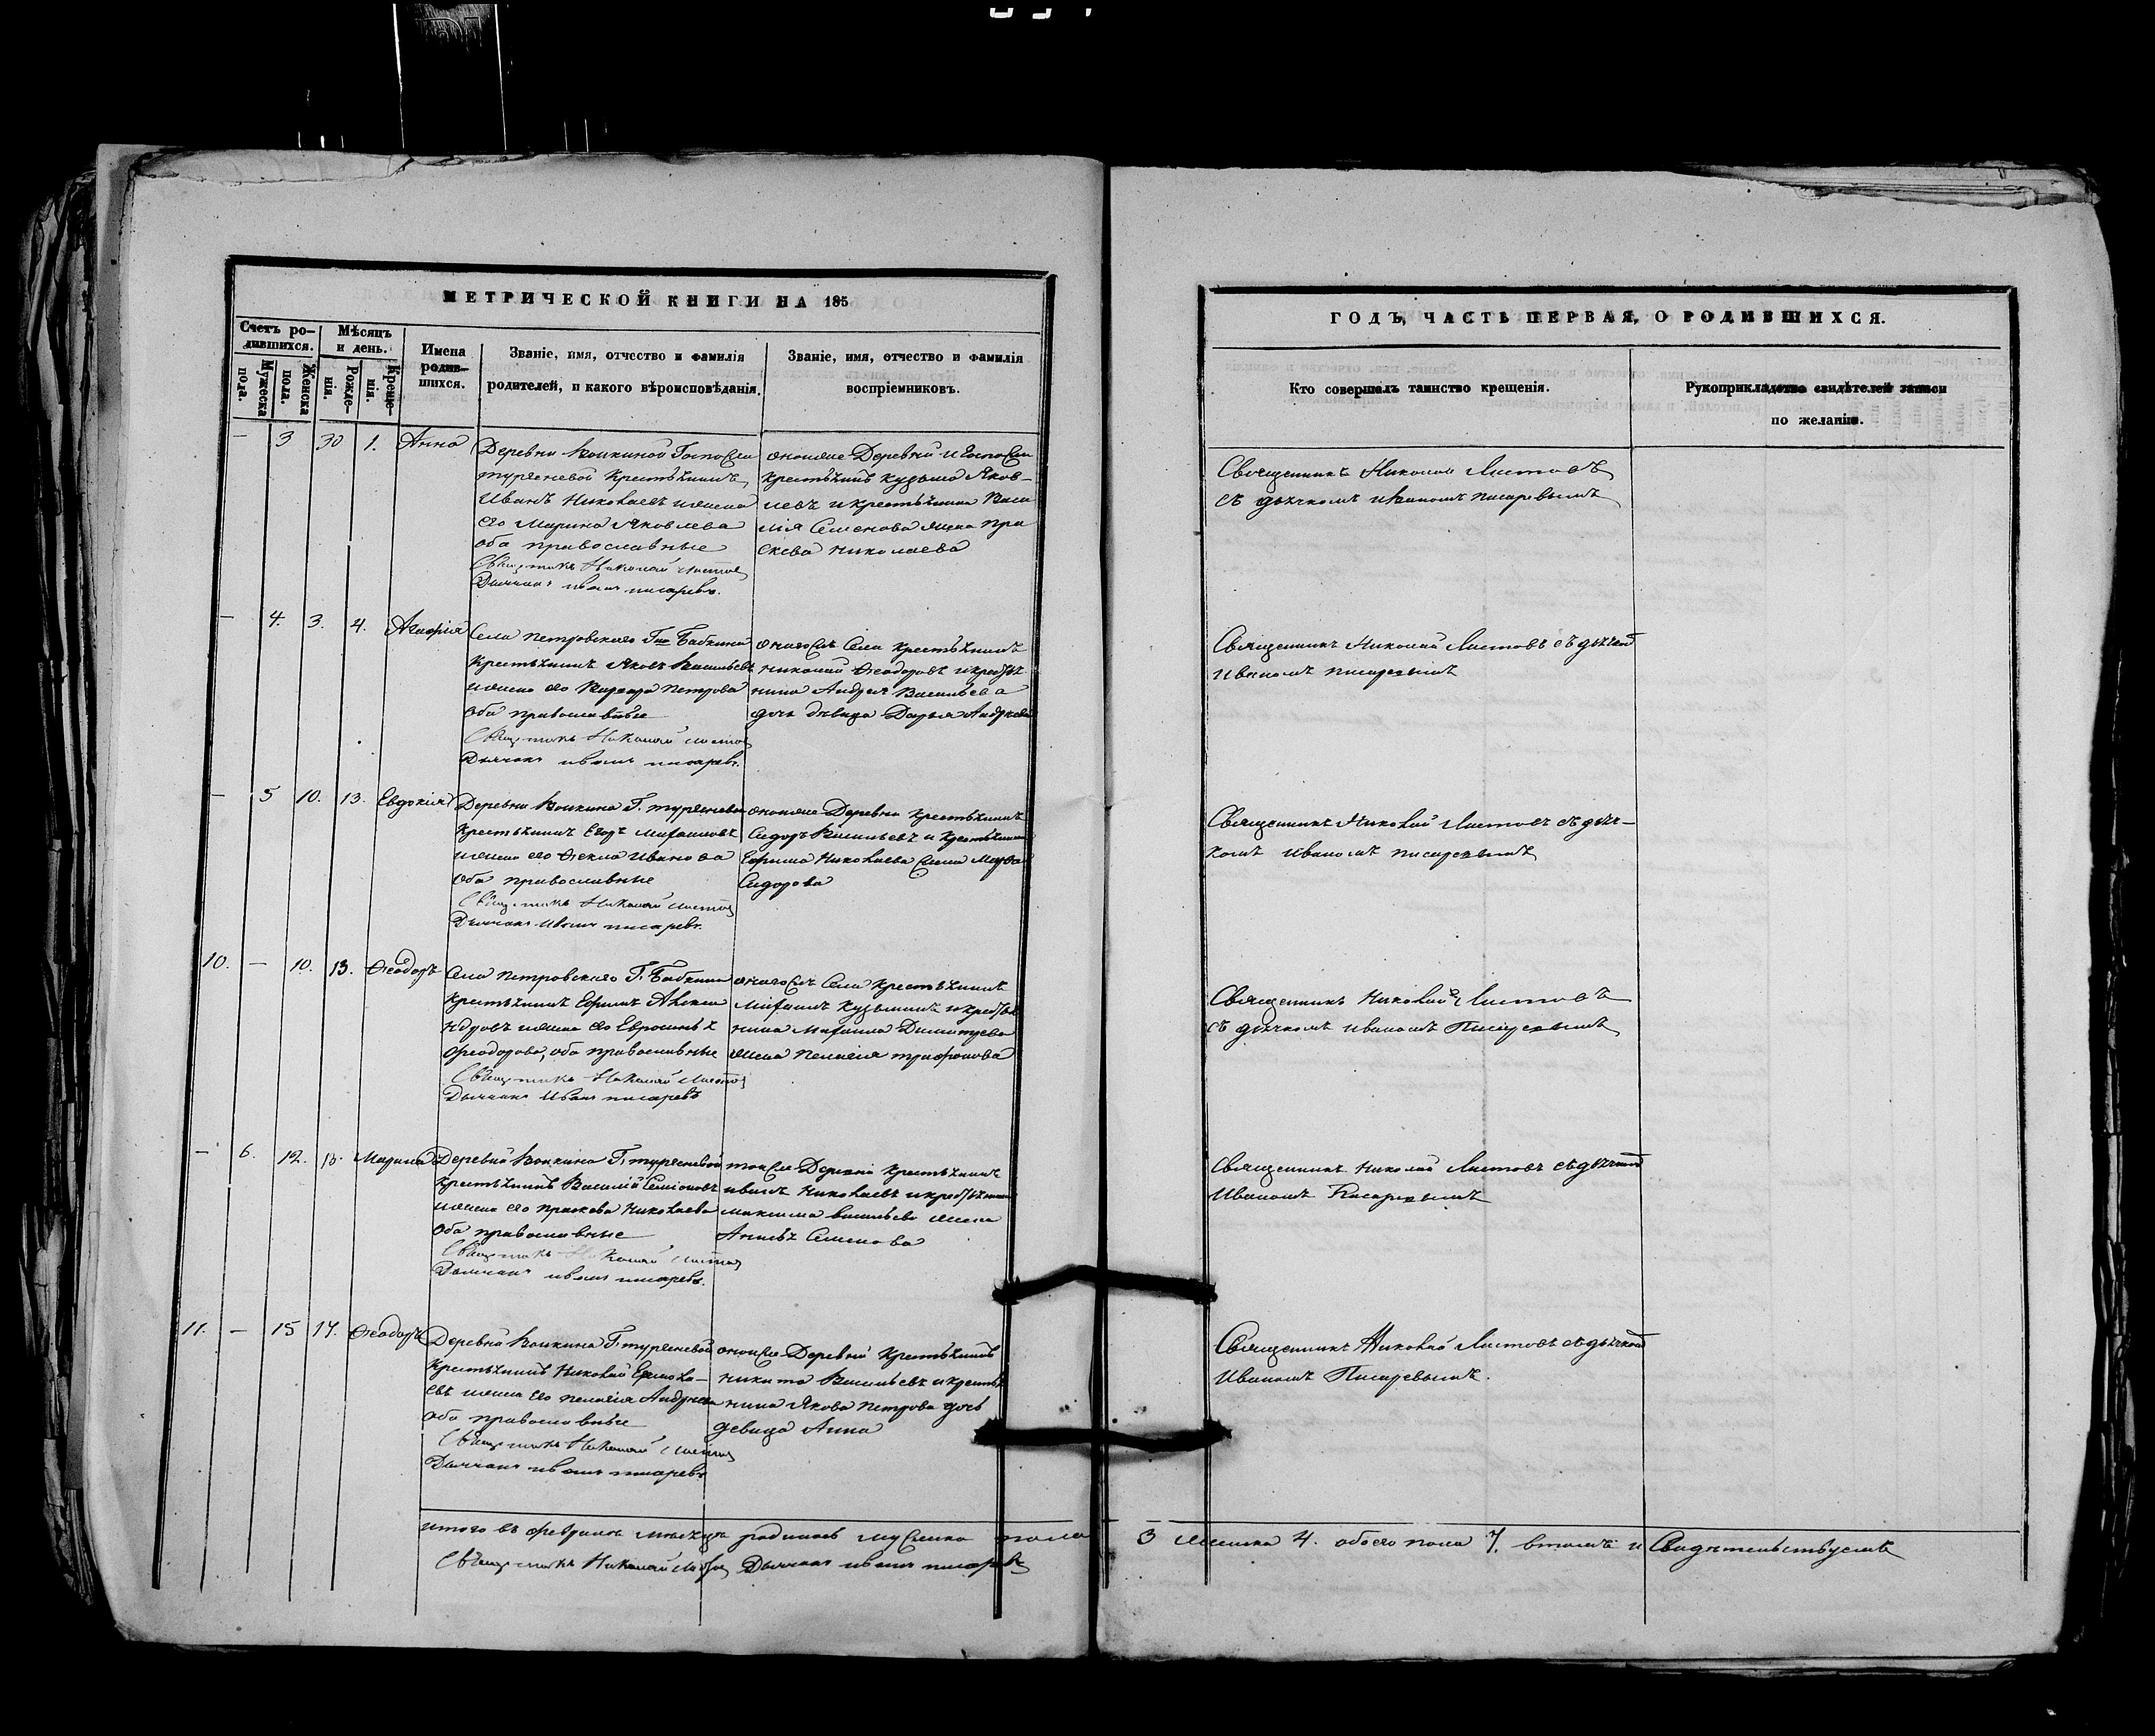 МЕТРИЧЕСКОЙ КНИГИ НА 185
Счетъ ро-
дившихся.
Мѣсяцъ
и день.
Мужеска
пола.
Женска
пола.
Рожде-
нія.
Креще-
нія.
Имена
родив-
шихся.
Званіе, имя, отчество и фамилія
родителей, и какого вѣроисповѣданія.
Званіе, имя, отчество и фамилія
воспріемниковъ.
— 3 30 1. Анна
Деревни Госпожи
тургеневой крестьянинъ
Иванъ Николаевъ и жена
его Марина Яковлева
оба православные
Священникъ Николай Листовъ
Дьячокъ иванъ писаревъ.
оной же Деревни и Госпожи
крестьянинъ кузьма Яков-
левъ и крестьянина Васи
лія Семенова жена Пра
скева николаева
— 4. 3. 4. Агафія
Села петровскаго Гна Бабкина
крестьянинъ Яковъ Васильевъ
и жена его Варвара петрова
оба православные
Священникъ Николай Листовъ
Дьячокъ иванъ писаревъ.
онагожъ Села крестьянинъ
николай Ѳеодоровъ и крестья
нина Андрея Васильева
дочь дѣвица Дарья Андреева
— 5 10. 13. Евдокія
Деревни Г. тургеневой
крестьянинъ Егоръ
и жена его Ѳекла Иванова
оба православные
Священникъ Николай Листовъ
Дьячокъ Иванъ писаревъ.
оной же Деревни крестьянинъ
Сидоръ Васильевъ и крестьянина
Ефима Николаева жена
Сидорова
10. — 10. 13. Ѳеодоръ
Села петровскаго Г. Бабкина
крестьянинъ Ефимъ Алекса
ндровъ и жена его Евросинья
Ѳеодорова, оба православные
Священникъ Николай Листовъ
Дьячокъ Иванъ писаревъ
онагожъ Села крестьянинъ
кузьминъ и крестья
нина Димитрева
жена пелагея трифонова
— 6. 12. 13. Марина
Деревни Г. тургеневой
крестьянинъ Василій Семіоновъ
и жена его праскева Николаева
оба православные
Священникъ Николай Листовъ
Дьячокъ иванъ писаревъ.
той же Деревни крестьянинъ
иванъ Николаевъ и крестьянина
максима васильева жена
Семенова
11. — 15 17. Ѳеодоръ
Деревни Г. тургеневой
крестьянинъ Николай Ермола-
евъ и жена его пелагея Андреева
оба православные
Священникъ Николай Листовъ
Дьячокъ иванъ писаревъ
оной же Деревни крестьянинъ
никита Васильевъ и крестья
нина Якова Петрова дочь
девица Анна
итого въ февралѣ мѣсяцѣ родилось мужеска пола
Священникъ Николай Листовъ Дьячокъ иванъ писаревъ
ГОДЪ, ЧАСТЬ ПЕРВАЯ, О РОДИВШИХСЯ.
Кто совершалъ таинство крещенія.
Рукоприкладство свидѣтелей записи
по желанію.
Священникъ Николай Листовъ
съ дьячкомъ иваномъ писаревымъ
Священникъ Николай Листовъ съ дьячкомъ
Иваномъ писаревымъ
Священникъ Николай Листовъ съ дьяч-
комъ Иваномъ писаревымъ
Священникъ Николай Листовъ
съ дьячкомъ иваномъ Писаревымъ
Священникъ Николай Листовъ съ дьячкомъ
Иваномъ Писаревымъ
Священникъ Николай Листовъ съ дьячкомъ
Иваномъ Писаревымъ.
3 женска 4. обоего пола 7. въ томъ и Свидѣтельствуемъ